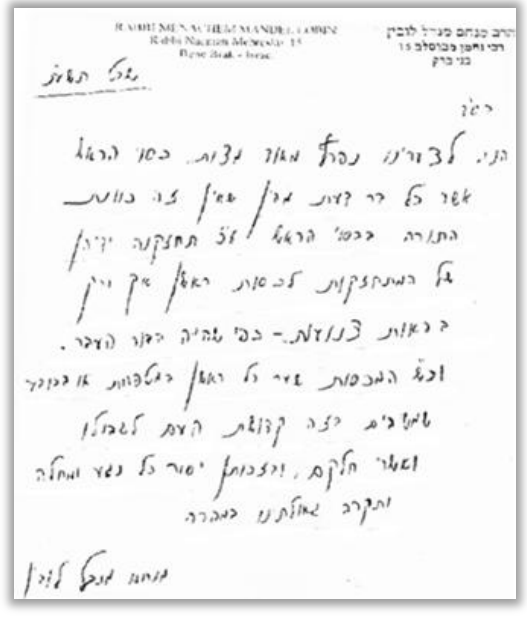 RABBI MENACHEM MANDEL LOBIN
Rabbi Nacman Mebreslav 15
Bene Brak - Israel
הרב מנחם מנדל לובין
רבי נחמן מברסלב 15
בני ברק
בס"ד
הנה לצערינו נפרץ מאוד מצות כסוי הראש
אשר כל בר דעת מבין שאין זה כוונת
התורה בכסוי הראש ע"כ תחזקנה ידיהן
של המתחזקות לכסות ראשן אך ורק
בצניעות - כפי שהיה בדור העבר.
המכסות שער כל ראשן במטפחת או בכובע
שמשיבים בזה קדושת העם לגבולו
ואשרי חלקם, ובזכותן יסור כל נגע ומחלה
ותקרב גאולתינו במהרה
מנחם מנדל לובין